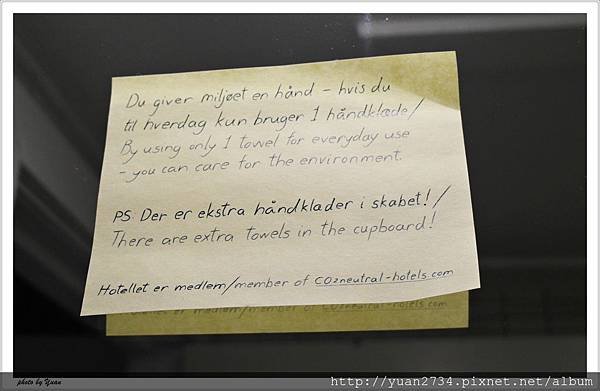 Du giver miljøet en hånd - hvis du
til hverdag kun bruger 1 håndklæde/
By using only 1 towel for everyday use
- you can care for the environment.
PS: Der er ekstra håndklader i skabet!/
There are extra towels in the cupboard!
Hotellet er medlem/member of CO2neutral-hotels.com
Hotellet er medlem/member of CO2neutral-hotels.com
photo by Yuan
http://yuan2734.pixnet.net/album